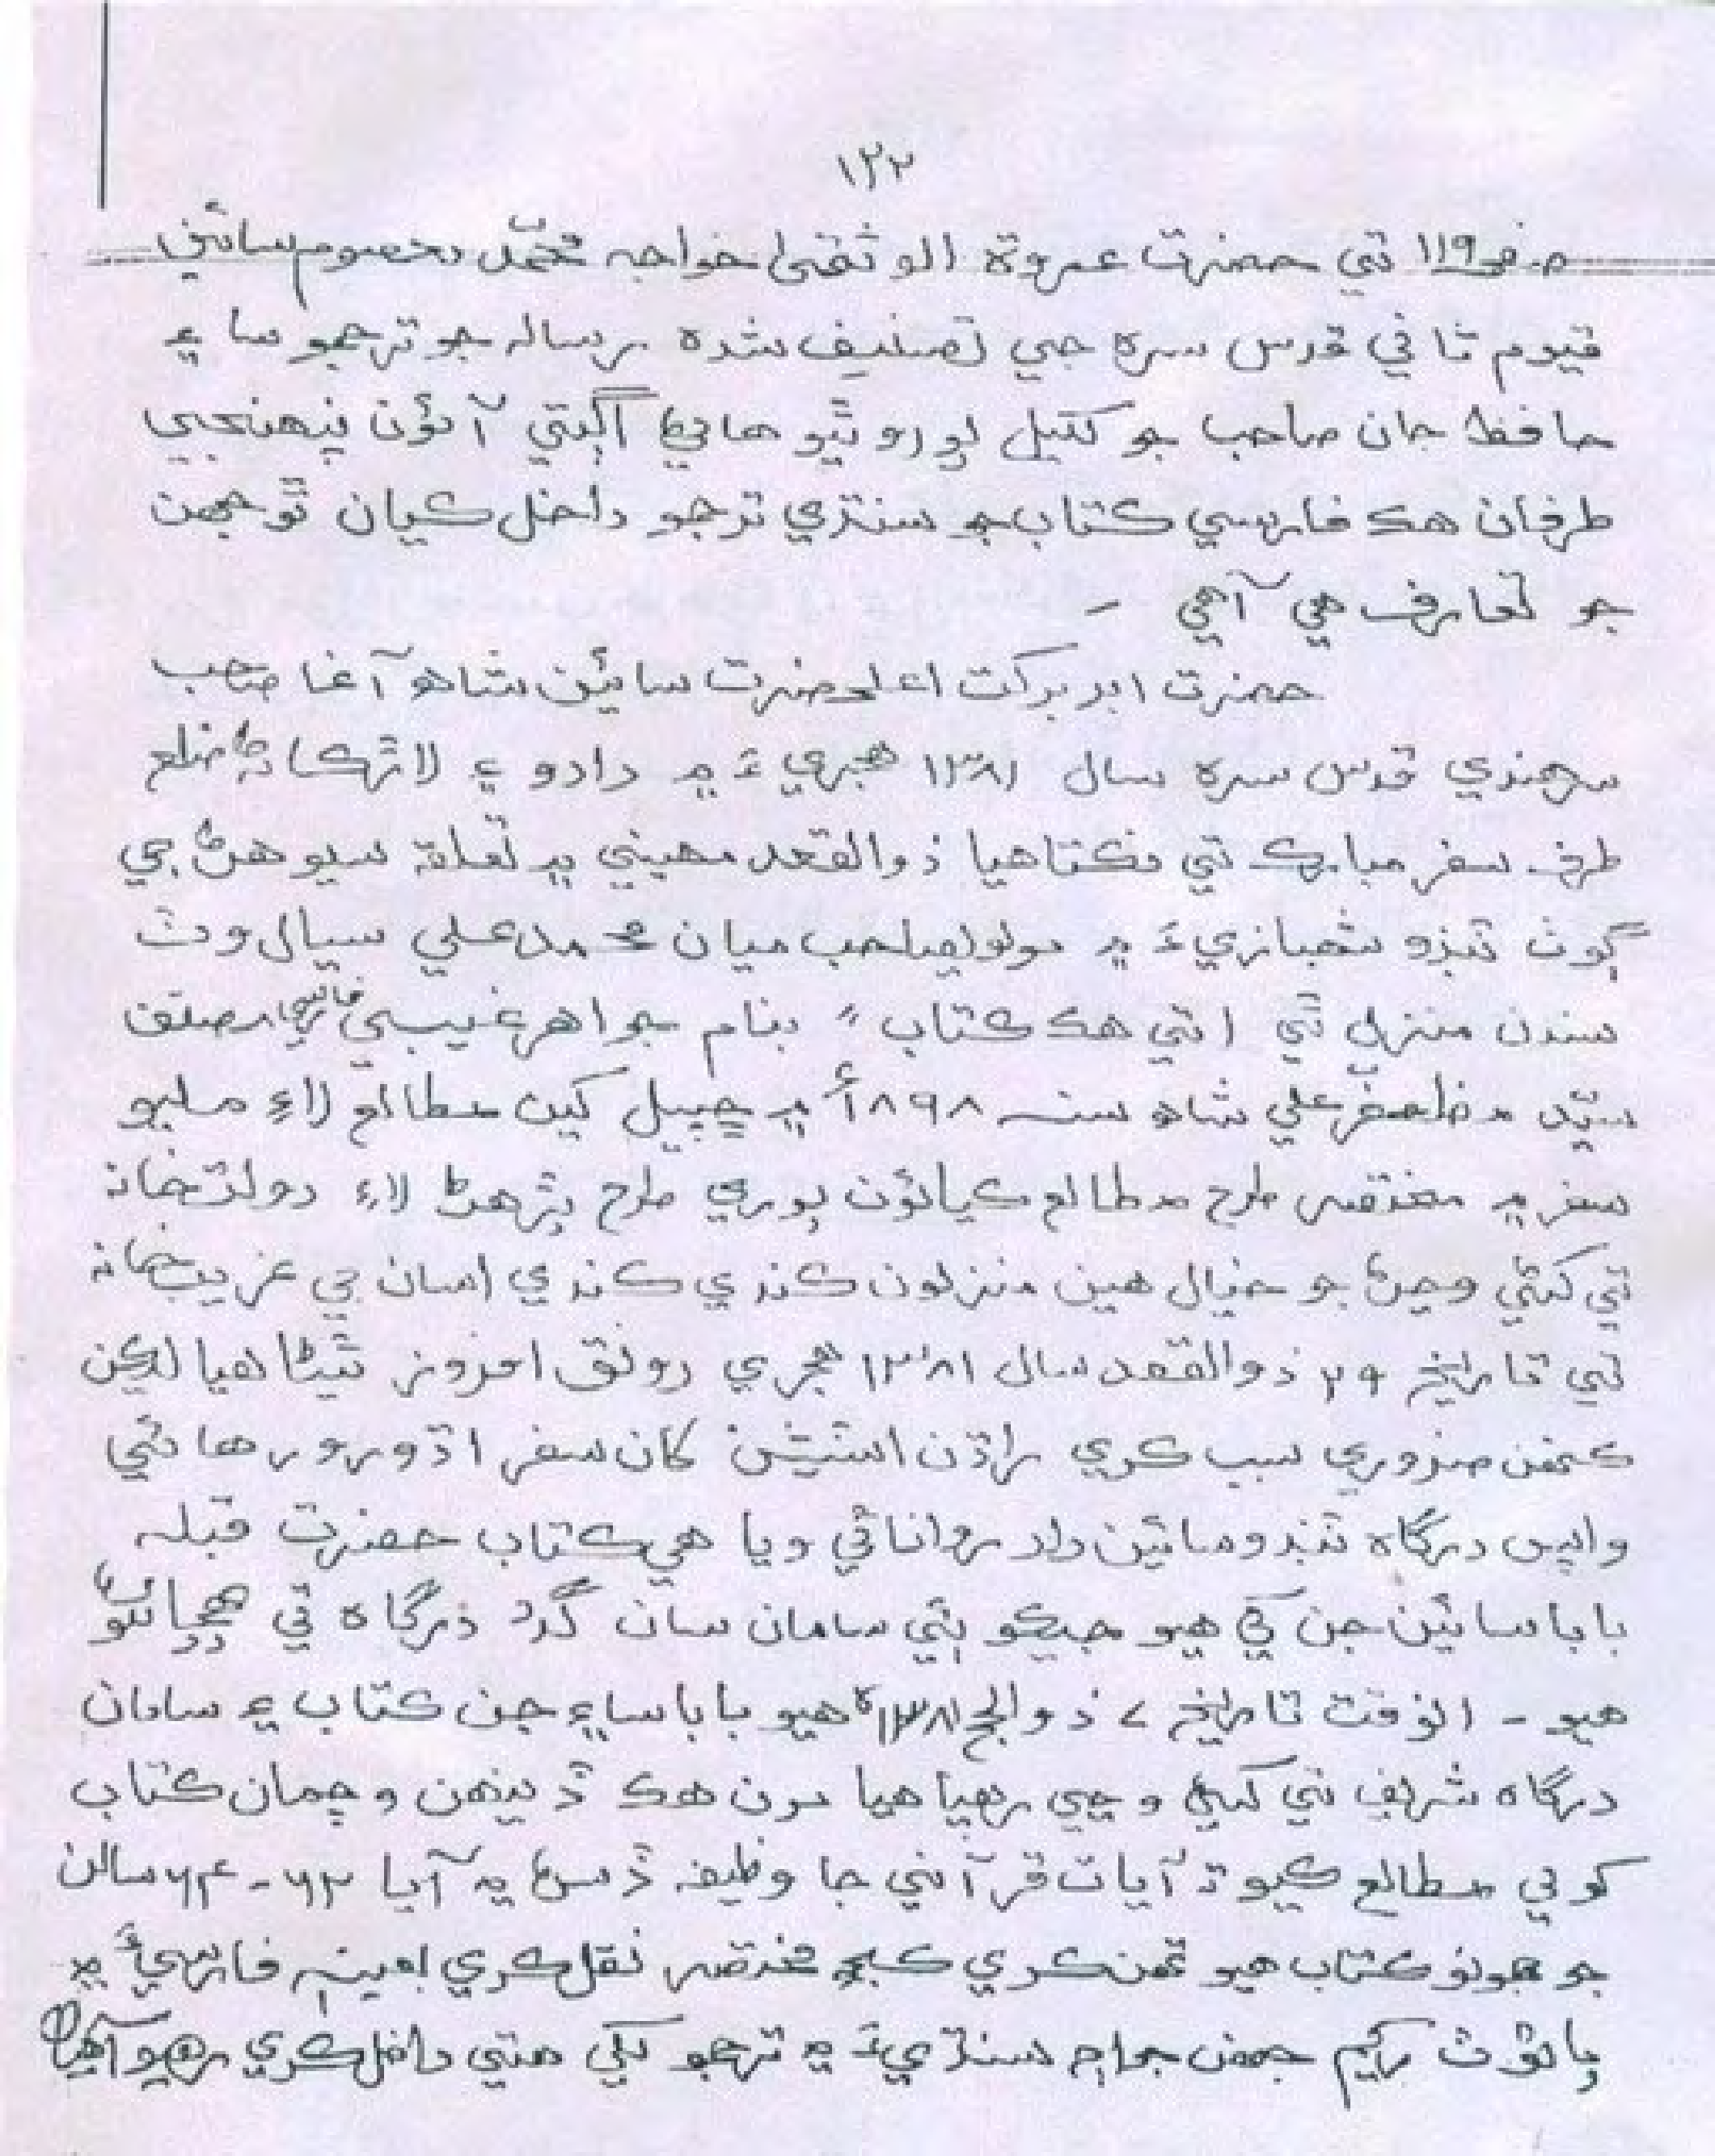 ١٢٢
صفحي ١١٩ تي حضرت عروة الوثقيٰ خواجہ محمّد معصوم سائين
قيوم ثاني قدس سره جي تصنيف شده رسالہ جو ترجمو سا ۽
حافظ جان صاحب جو ڪتيل پورو ٿيو هاڻي اڳتي آئون پنهنجي
طرفان هڪ فارسي ڪتاب جو سنڌي ترجو داخل ڪيان ٿو جهن
جو تعارف هي آهي –
حضرت ابر برڪت اعليٰ حضرت سائين شاهه آغا صاحب
سرهندي قدس سره سال ١٣٨١ هجري ۾ دادو ۽ لاڙڪاڻہ ضلع
طرف سفر مبارڪ تي نڪتا هيا ذوالقعد مهيني ۾ تعلقہ سيوهڻ جي
ڳوٺ ٽنڊو شهبازيءَ ۾ مولوي صاحب ميان محمد علي سيال وٽ
سندن منزل ٿي اتي هڪ ڪتاب " بنام جواهر غيبي فارسي مصنف
سيّد مظفر علي شاهه سنہ ١٨٩٨ع ۾ ڇپيل کين مطالع لاءِ مليو
سفر ۾ مختصر طرح مطالع ڪيائون پوري طرح پڙهڻ لاءِ دولت خانہ
تي کڻي وڃڻ جو خيال هين منزلون ڪندي ڪندي اسان جي غريب خانہ
تي تاريخ ٢٩ ذوالقعد سال ١٣٨١ هجري رونق افروز ٿيڻا هيا ليڪن
ڪنهن ضروري سبب ڪري راڌن اسٽيشن کان سفر اڌورو رهائي
واپس درگاه ٽنڊو سائينداد روانا ٿي ويا هي ڪتاب حضرت قبلہ
بابا سائين جن کي هيو جيڪو ٻئي سامان سان گڏ درگاه تي
هيو – انوقت تاريخ ٧ ذوالحج ١٣٨١ھ هيو بابا سا۽ جن ڪتاب ۽ سامان
درگاه شريف تي کڻي وڃي رهيا هيا مون هڪ ڏينهن وچمان ڪتاب
کولي مطالع ڪيو تہ آيات قرآني جا وظيفہ ڏسڻ ۾ آيا ٦٣ – ٦٤ سالن
جو جهونو ڪتاب هيو تنهن ڪري ڪجهہ مختصر نقل ڪري بعينہ فارسيءَ ۾
پاڻ وٽ رکيم جهن جو اڄ سنڌيءَ ۾ ترجمو لکي هتي داخل ڪري رهيو آهيان